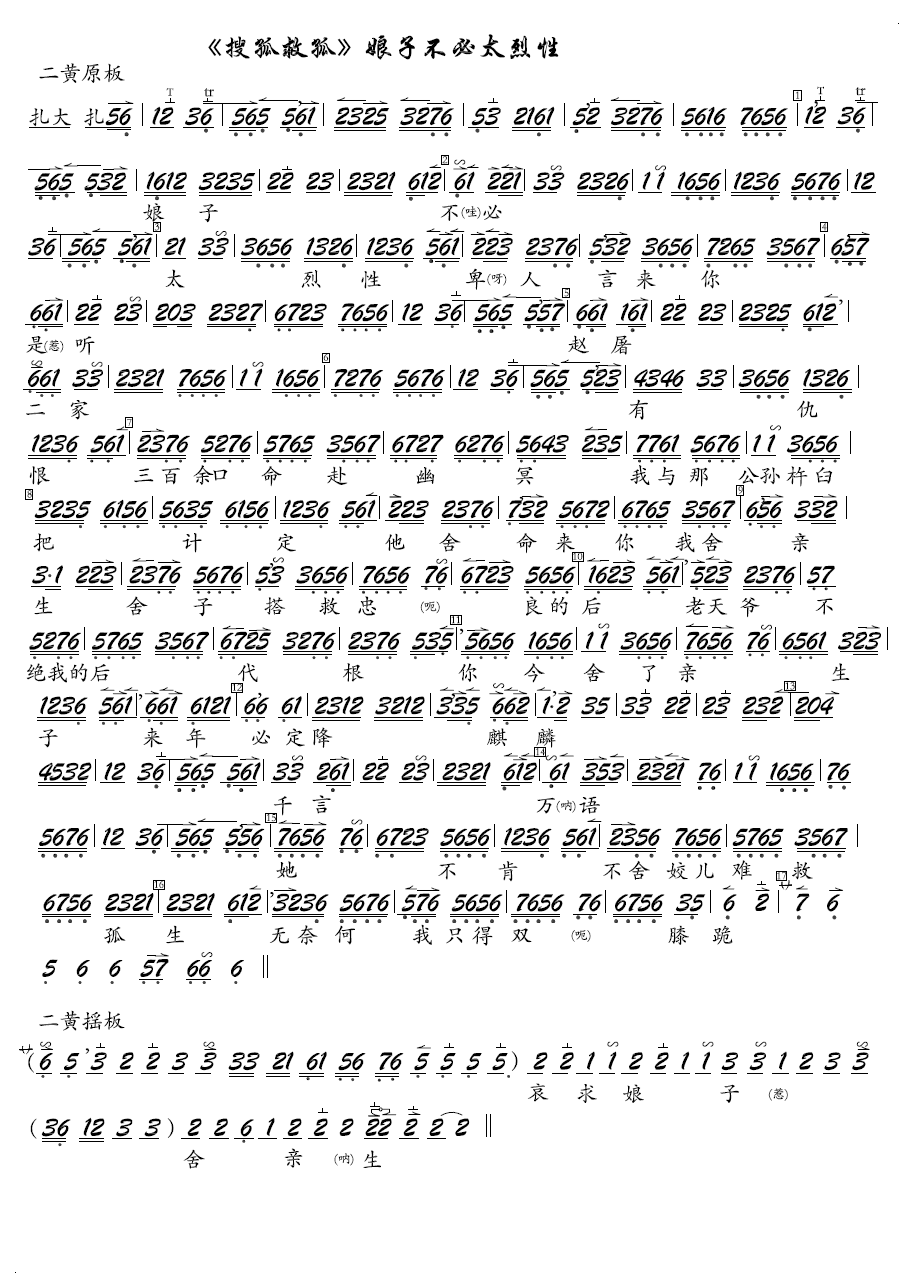 《搜孤救孤》娘子不必太烈性
二黄原板
扎大 扎56 | 12 36 | 565 561 | 2325 3276 | 53 2161 | 52 3276 | 5616 7656 | 12 36 |
565 532 | 1612 3235 | 22 23 | 2321 612 | 61 221 | 33 2326 | 11 1656 | 1236 5676 | 12
娘 子 不(哇)必
36 | 565 561 | 21 33 | 3656 1326 | 1236 561 | 223 2376 | 532 3656 | 7265 3567 | 657
太 烈 性 卑(呀)人 言来 你
661 | 22 23 | 203 2327 | 6723 7656 | 12 36 | 565 557 | 661 161 | 22 23 | 2325 612 |
是(惹)听 赵 屠
661 33 | 2321 7656 | 11 1656 | 7276 5676 | 12 36 | 565 523 | 4346 33 | 3656 1326 |
二 家 有 仇
1236 561 | 2376 5276 | 5765 3567 | 6727 6276 | 5643 235 | 7761 5676 | 11 3656 |
恨 三百余口 命 赴 幽 冥 我与那 公孙杵臼
3235 6156 | 5635 6156 | 1236 561 | 223 2376 | 732 5672 | 6765 3567 | 656 332 |
把 计 定 他 舍 命来 你 我舍 亲
3·1 223 | 2376 5676 | 53 3656 | 7656 76 | 6723 5656 | 1623 561 | 523 2376 | 57
生 舍 子 搭 救忠 (呃) 良的后 老天爷 不
5276 | 5765 3567 | 6725 3276 | 2376 535 | 5656 1656 | 11 3656 | 7656 76 | 6561 323 |
绝我的后 代 根 你 今 舍 了亲 生
1236 561 | 661 6121 | 66 61 | 2312 3212 | 335 662 | 1·2 35 | 33 22 | 23 232 | 204
子 来 年 必 定降 麒 麟
4532 | 12 36 | 565 561 | 33 261 | 22 23 | 2321 612 | 61 353 | 2321 76 | 11 1656 | 76
千 言 万(呐)语
5676 | 12 36 | 565 556 | 7656 76 | 6723 5656 | 1236 561 | 2356 7656 | 5765 3567 |
她 不 肯 不舍 姣儿 难 救
6756 2321 | 2321 612 | 3236 5676 | 576 5656 | 7656 76 | 6756 35 | 6 2 | 7 6
孤 生 无奈何 我只得双 (呃) 膝 跪
5 6 6 57 66 6 ‖
二黄摇板
(6 5 3 2 2 3 3 33 21 61 56 76 5 5 5 5) 2 2 1 1 2 2 1 1 3 3 1 2 3 3
哀 求 娘 子 (惹)
(36 12 3 3) 2 2 6 1 2 2 2 22 2 2 2 ‖
舍 亲 (呐)生